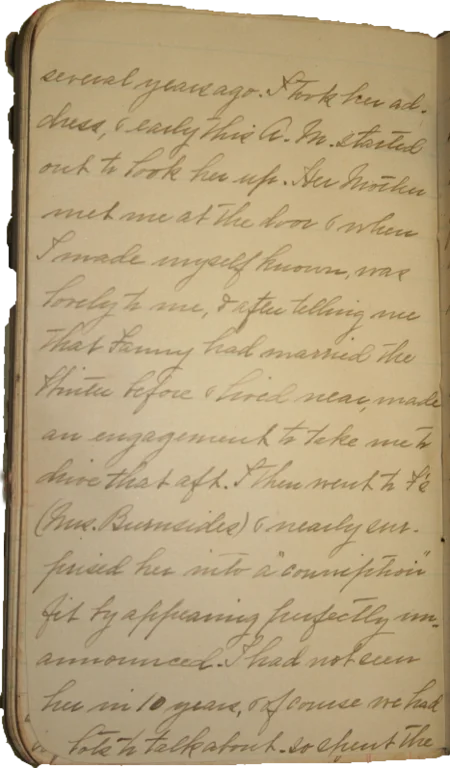 several years ago. I took her ad-
dress, & early this A.M. started
out to look her up. Her Mother
met me at the door & when
I made myself known, was
lovely to me, & after telling me
that Fanny had married the
Winter before & lived near, made
an engagement to take me to
drive that aft. I then went to F's
(Mrs. Burnsides) & nearly sur-
prised her into a "conniption"
fit by appearing perfectly un-
announced. I had not seen
her in 10 years, & of course we had
lots to talk about. so spent the